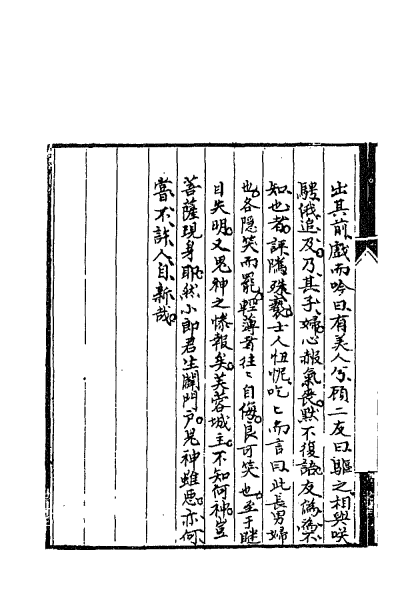 出其前戲而吟曰有美人兮顧二友曰驅之相與笑
騁俄追及乃其子婦心赧氣喪默不復語友偽為不
知也者評騭殊褻士人忸怩吃〻而言曰此長男婦
也各隱笑而罷輕薄者往〻自侮良可笑也至于眯
目失明又鬼神之慘報矣芙蓉城主不知何神豈
菩薩現身耶然小郎君生闢門戶鬼神雖惡亦何
嘗不許人自新哉